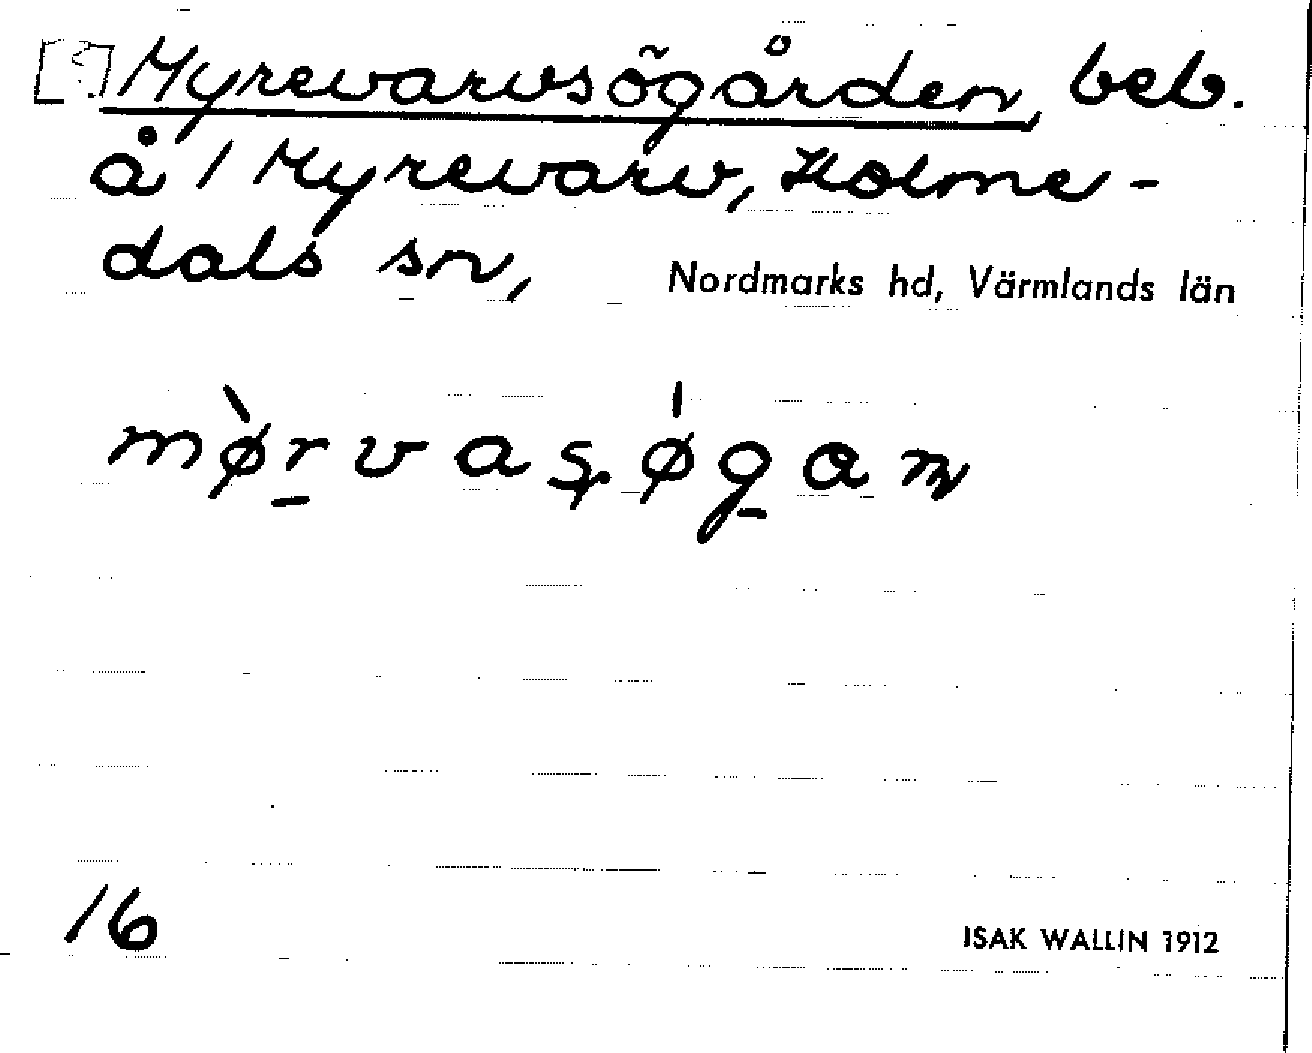 [?] Myrevarvsögården, beb.
å 1 Myrevarv, Holme-
dals sn, Nordmarks hd, Värmlands län
mø̀rvasǿgan
16
ISAK WALLIN 1912